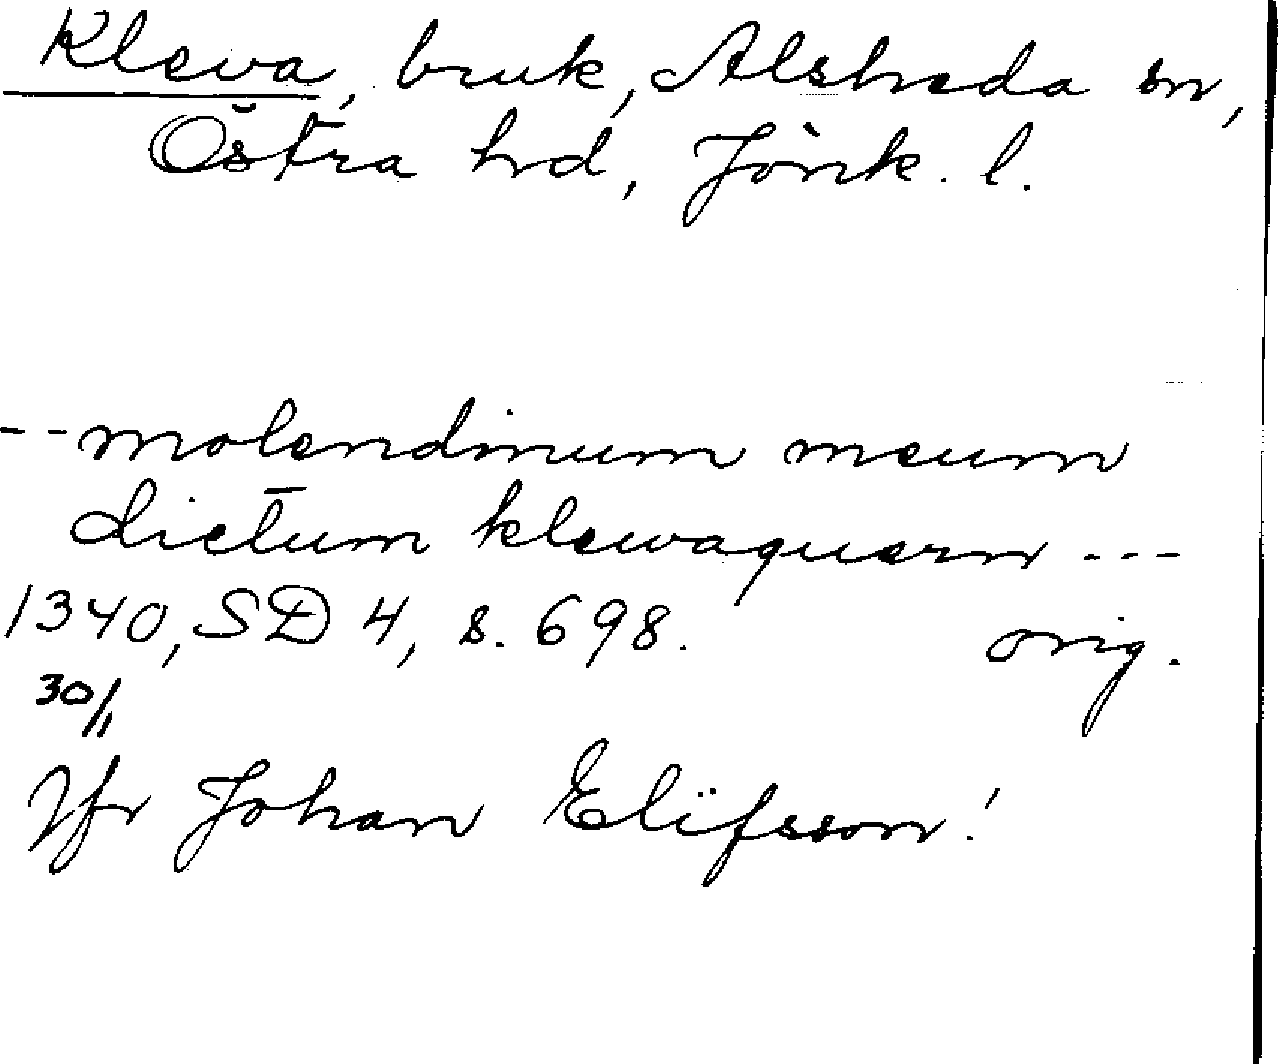 Kleva, bruk, Alsheda sn,
Östra hrd, Jönk. l.
-- molendinum meum
dictum klewaquærn ---
1340, SD 4, s. 698. orig.
30/11
Jfr Johan Elifsson!